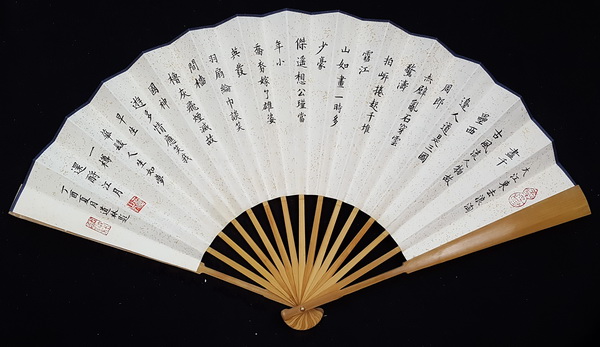 大江東去浪淘
盡千
古風流人物故
壘西
邊人道是三國
周郎
赤壁亂石穿雲
驚濤
拍岸捲起千堆
雪江
山如畫一時多
少豪
傑遥想公瑾當
年小
喬初嫁了雄姿
英發
羽扇綸巾談笑
間檣
櫓灰飛煙滅故
國神
遊多情應笑我
早生
華髮人生如夢
一樽
還酹江月
丁酉夏月道林題